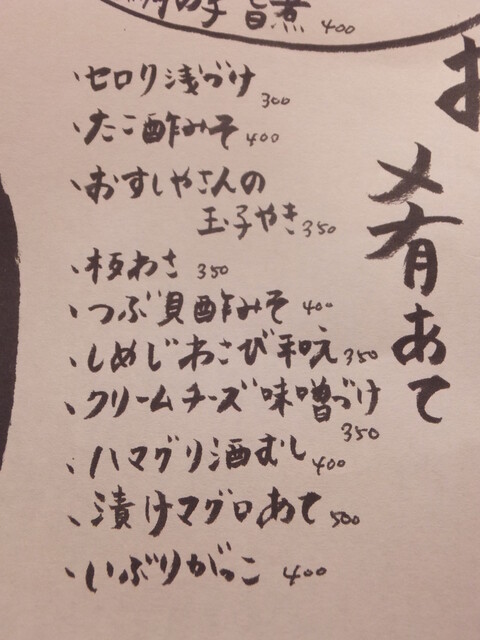 旨煮 400
お
肴あて
、セロリ浅づけ 300
、たこ酢みそ 400
、おすしやさんの
玉子やき 350
、板わさ 350
、つぶ貝酢みそ 400
、しめじわさび和え 350
、クリームチーズ味噌づけ 350
、ハマグリ酒むし 400
、漬けマグロあて 500
、いぶりがっこ 400